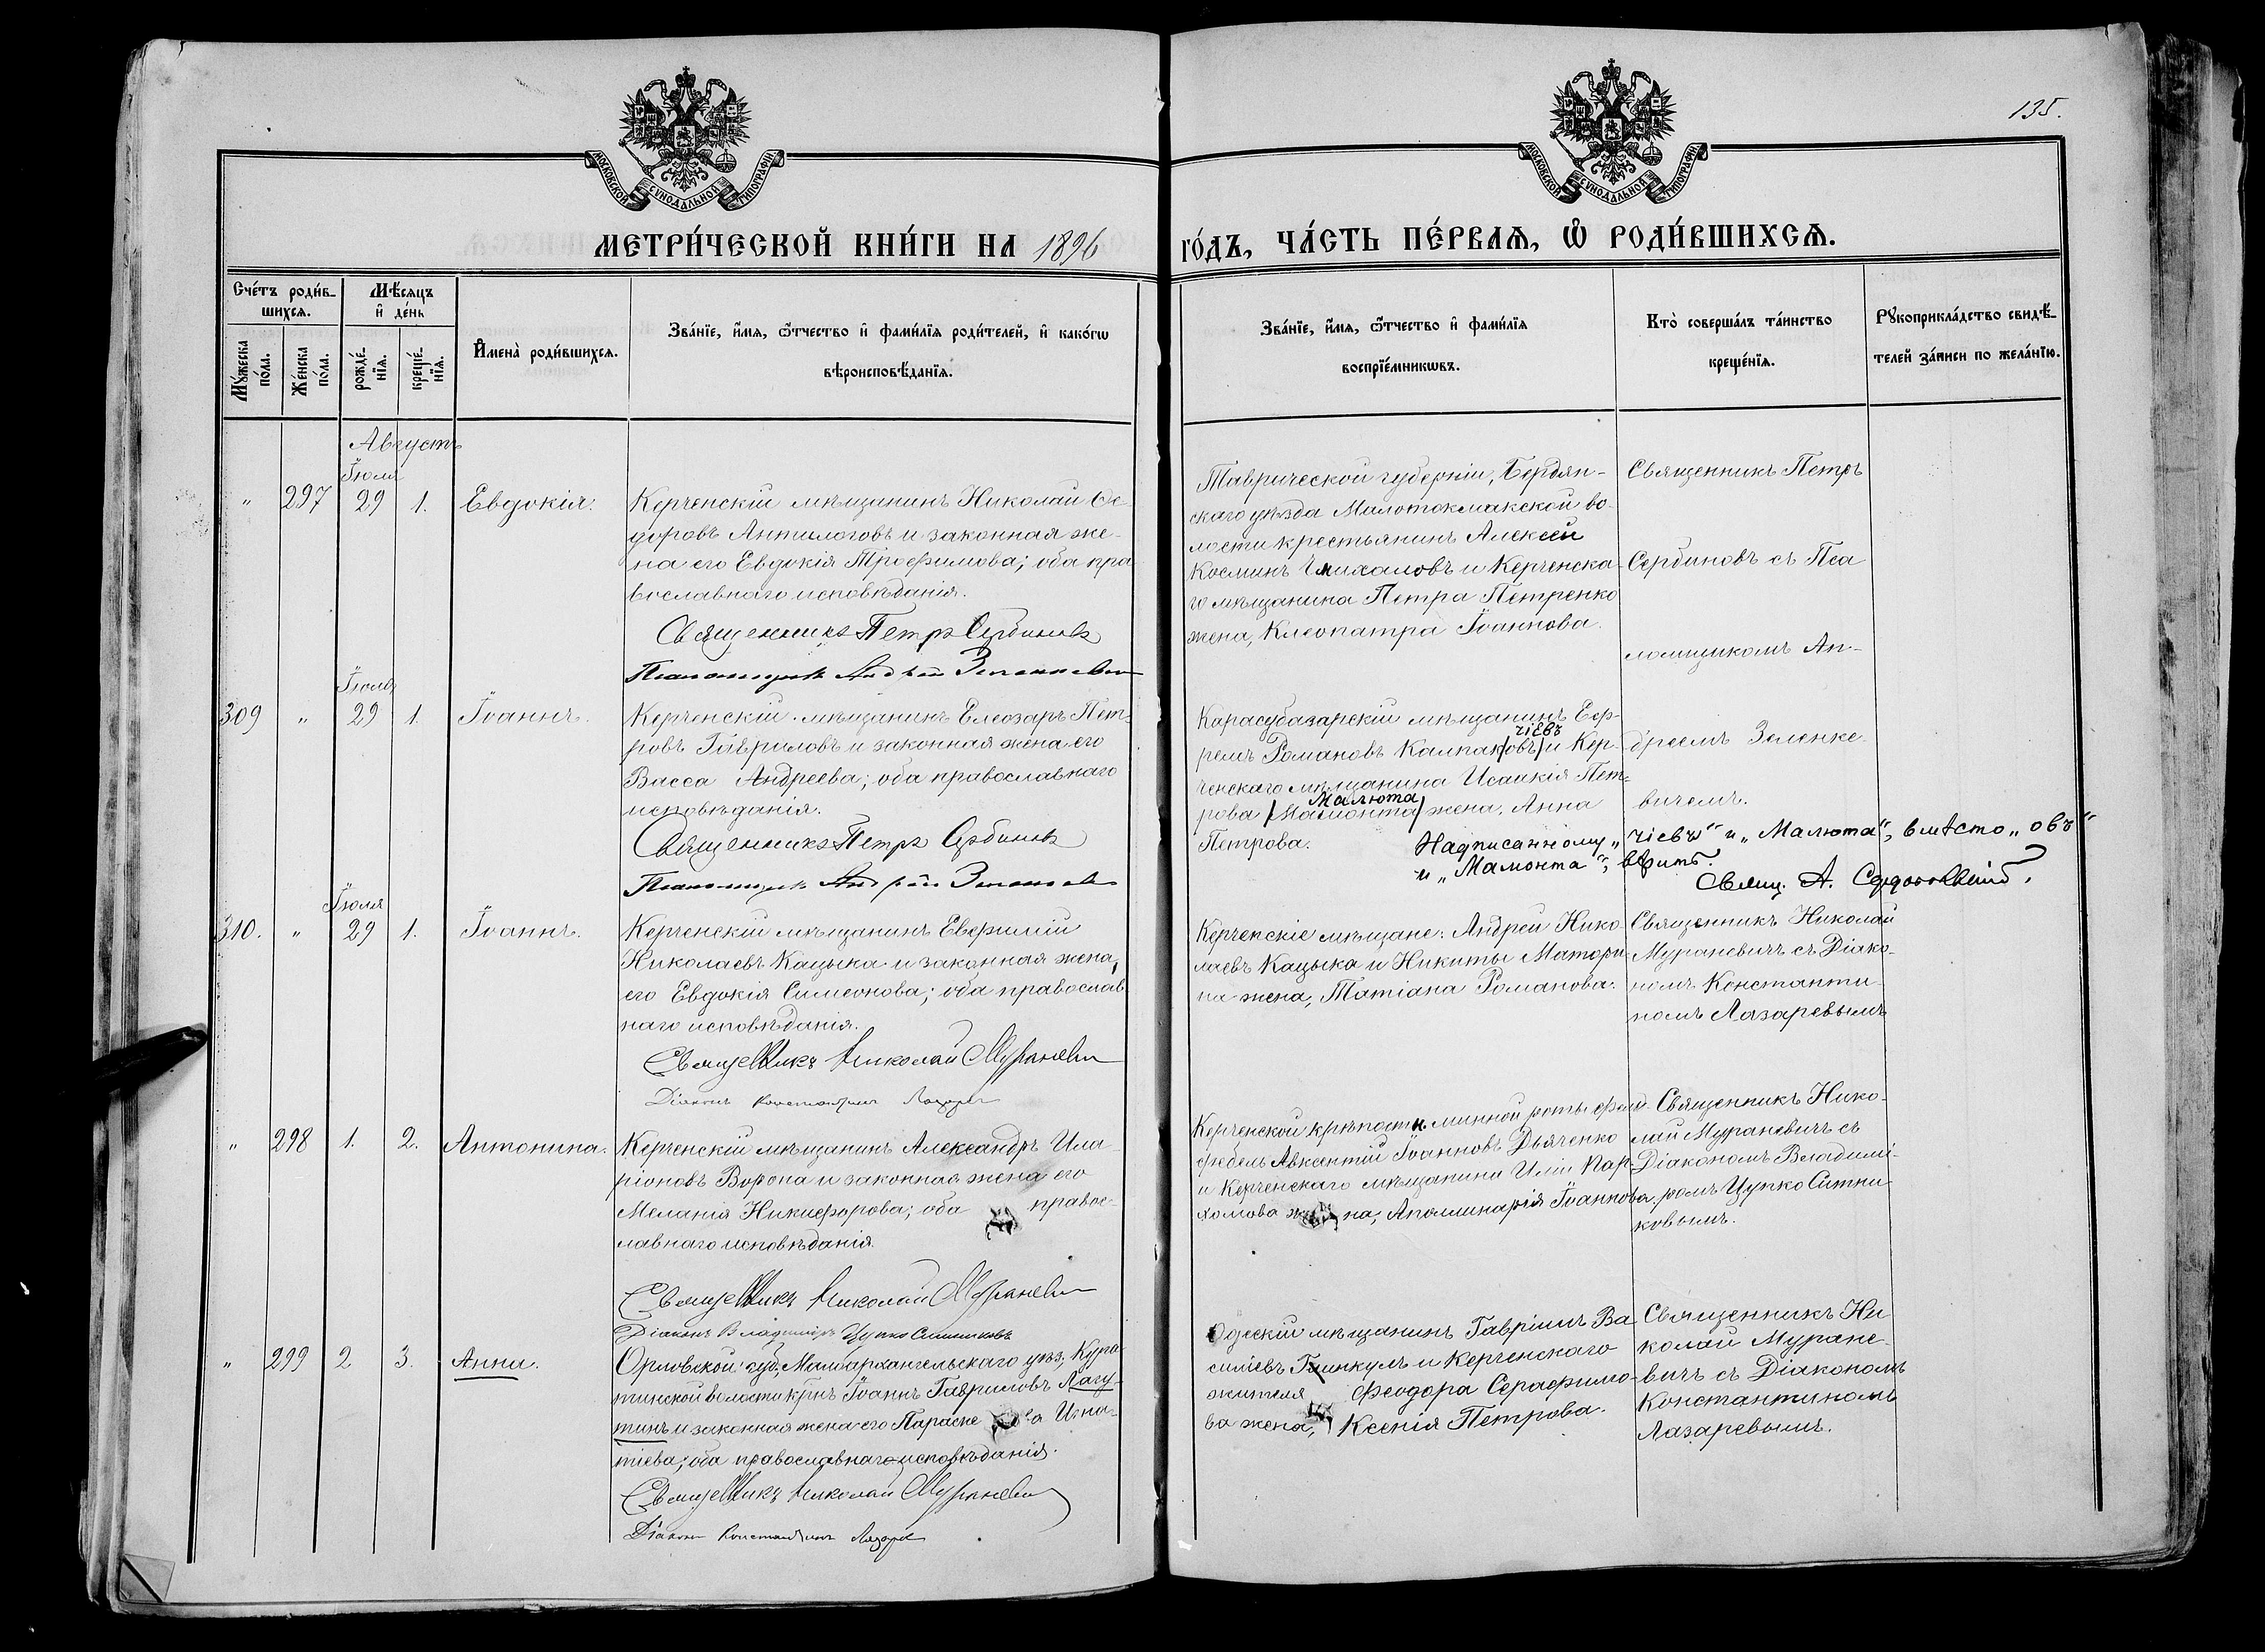 135.
МОСКОВСКОЙ СѴНОДАЛЬНОЙ ТИПОГРАФІИ
МОСКОВСКОЙ СѴНОДАЛЬНОЙ ТИПОГРАФІИ
МЕТРИ́ЧЕСКОЙ КНИ́ГИ НА 1896
ГО́ДЪ, ЧА́СТЬ ПЕ́РВАѦ, Ѡ҆ РОДИ́ВШИХСѦ.
Сче́тъ роди́в-
шихсѧ.
Мѣ́сѧцъ
и҆ де́нь
Мꙋ́жеска
по́ла.
Же́нска
по́ла.
рожде́-
нїѧ.
креще́-
нїѧ.
И҆мена̀ роди́вшихсѧ.
Зва́нїе, и҆́мѧ, ѻ҆́тчество и҆ фами́лїѧ роди́телей, и҆ како́гѡ
вѣроисповѣ́данїѧ.
Зва́нїе, и҆́мѧ, ѻ҆́тчество и҆ фами́лїѧ
воспрїе́мникѡвъ.
Кто̀ соверша́лъ та́инство
креще́нїѧ.
Рꙋкоприкла́дство свидѣ́-
телей за́писи по жела́нїю.
Августъ
Іюля
" 297 29 1. Евдокія.
Керченскій мѣщанинъ Николай Ѳе-
доровъ Антилоговъ и законная же-
на его Евдокія Трофимова; оба пра
вославнаго исповѣданія.
Священникъ Петръ Сербиновъ
Псаломщикъ Андрей Зеленкевич
Таврической губерніи, Бердян-
скаго уѣзда Малотокмакской во-
лости крестьянинъ Алексѣй
Косминъ и Керченска-
го мѣщанина Петра Петренко
жена, Клеопатра Іоаннова.
Священникъ Петръ
Сербиновъ съ Пса
ломщикомъ Ан-
Іюля
309 " 29 1. Іоаннъ.
Керченскій мѣщанинъ Елеозаръ Пет-
ровъ Гавриловъ и законная жена его
Васса Андреева; оба православнаго
исповѣданія.
Священникъ Петръ Сербиновъ
Псаломщикъ Андрей Зеленкев
Карасубазарскій мѣщанинъ Еф-
чіевъ
ремъ Романовъ Калпак/овъ/ и Кер-
ченскаго мѣщанина Исаикія Пет-
Малюта
рова /Мамонта/ жена, Анна
Петрова.
дреемъ Зеленке-
вичемъ.
Надписанному „чіевъ“ и „Малюта“, вмѣсто „овъ“
и „Мамонта“, вѣрить.
Свящ. А.
Іюля
310. " 29 1. Іоаннъ.
Керченскій мѣщанинъ Евфимій
Николаевъ Кацыка и законная жена
его Евдокія Симеонова; оба православ
наго исповѣданія.
Священникъ Николай Мураневич
Діаконъ Константинъ Лазарев
Керченскіе мѣщане: Андрей Нико-
лаевъ Кацыка и Никиты Матори-
на жена, Татіана Романова.
Священникъ Николай
Мураневичъ съ Діако-
номъ Константи-
номъ Лазаревымъ
" 298 1. 2. Антонина.
Керченскій мѣщанинъ Александръ Ила-
ріоновъ Ворона и законная жена его
Меланія Никифорова; оба правос-
лавнаго исповѣданія.
Священникъ Николай Мураневич
Діаконъ Владиміръ Цупко Ситниковъ
Керченской крѣпостн минной роты фельд-
фебель Авксентій Іоанновъ Дьяченко
и Керченскаго мѣщанина Иліи Пар-
хомова жена, Аполлинарія Іоаннова.
Священникъ Нико-
лай Мураневичъ съ
Діакономъ Владимі-
ромъ Цупко Ситни-
ковымъ.
" 299 2 3. Анна.
Орловской губ., Малоархангельскаго уѣз., Кура-
тинской волости кр-нъ Іоаннъ Гавриловъ Лагу-
тинъ и законная жена его Параске ва Игна-
тіева; оба православнаго исповѣданія.
Священникъ Николай Мураневич
Діаконъ Константинъ Лазарев
Одесскій мѣщанинъ Гавріилъ Ва-
силіевъ и Керченскаго
жителя Феодора Серафимо-
ва жена, Ксенія Петрова.
Священникъ Ни-
колай Муране-
вичъ съ Діакономъ
Константиномъ
Лазаревымъ.